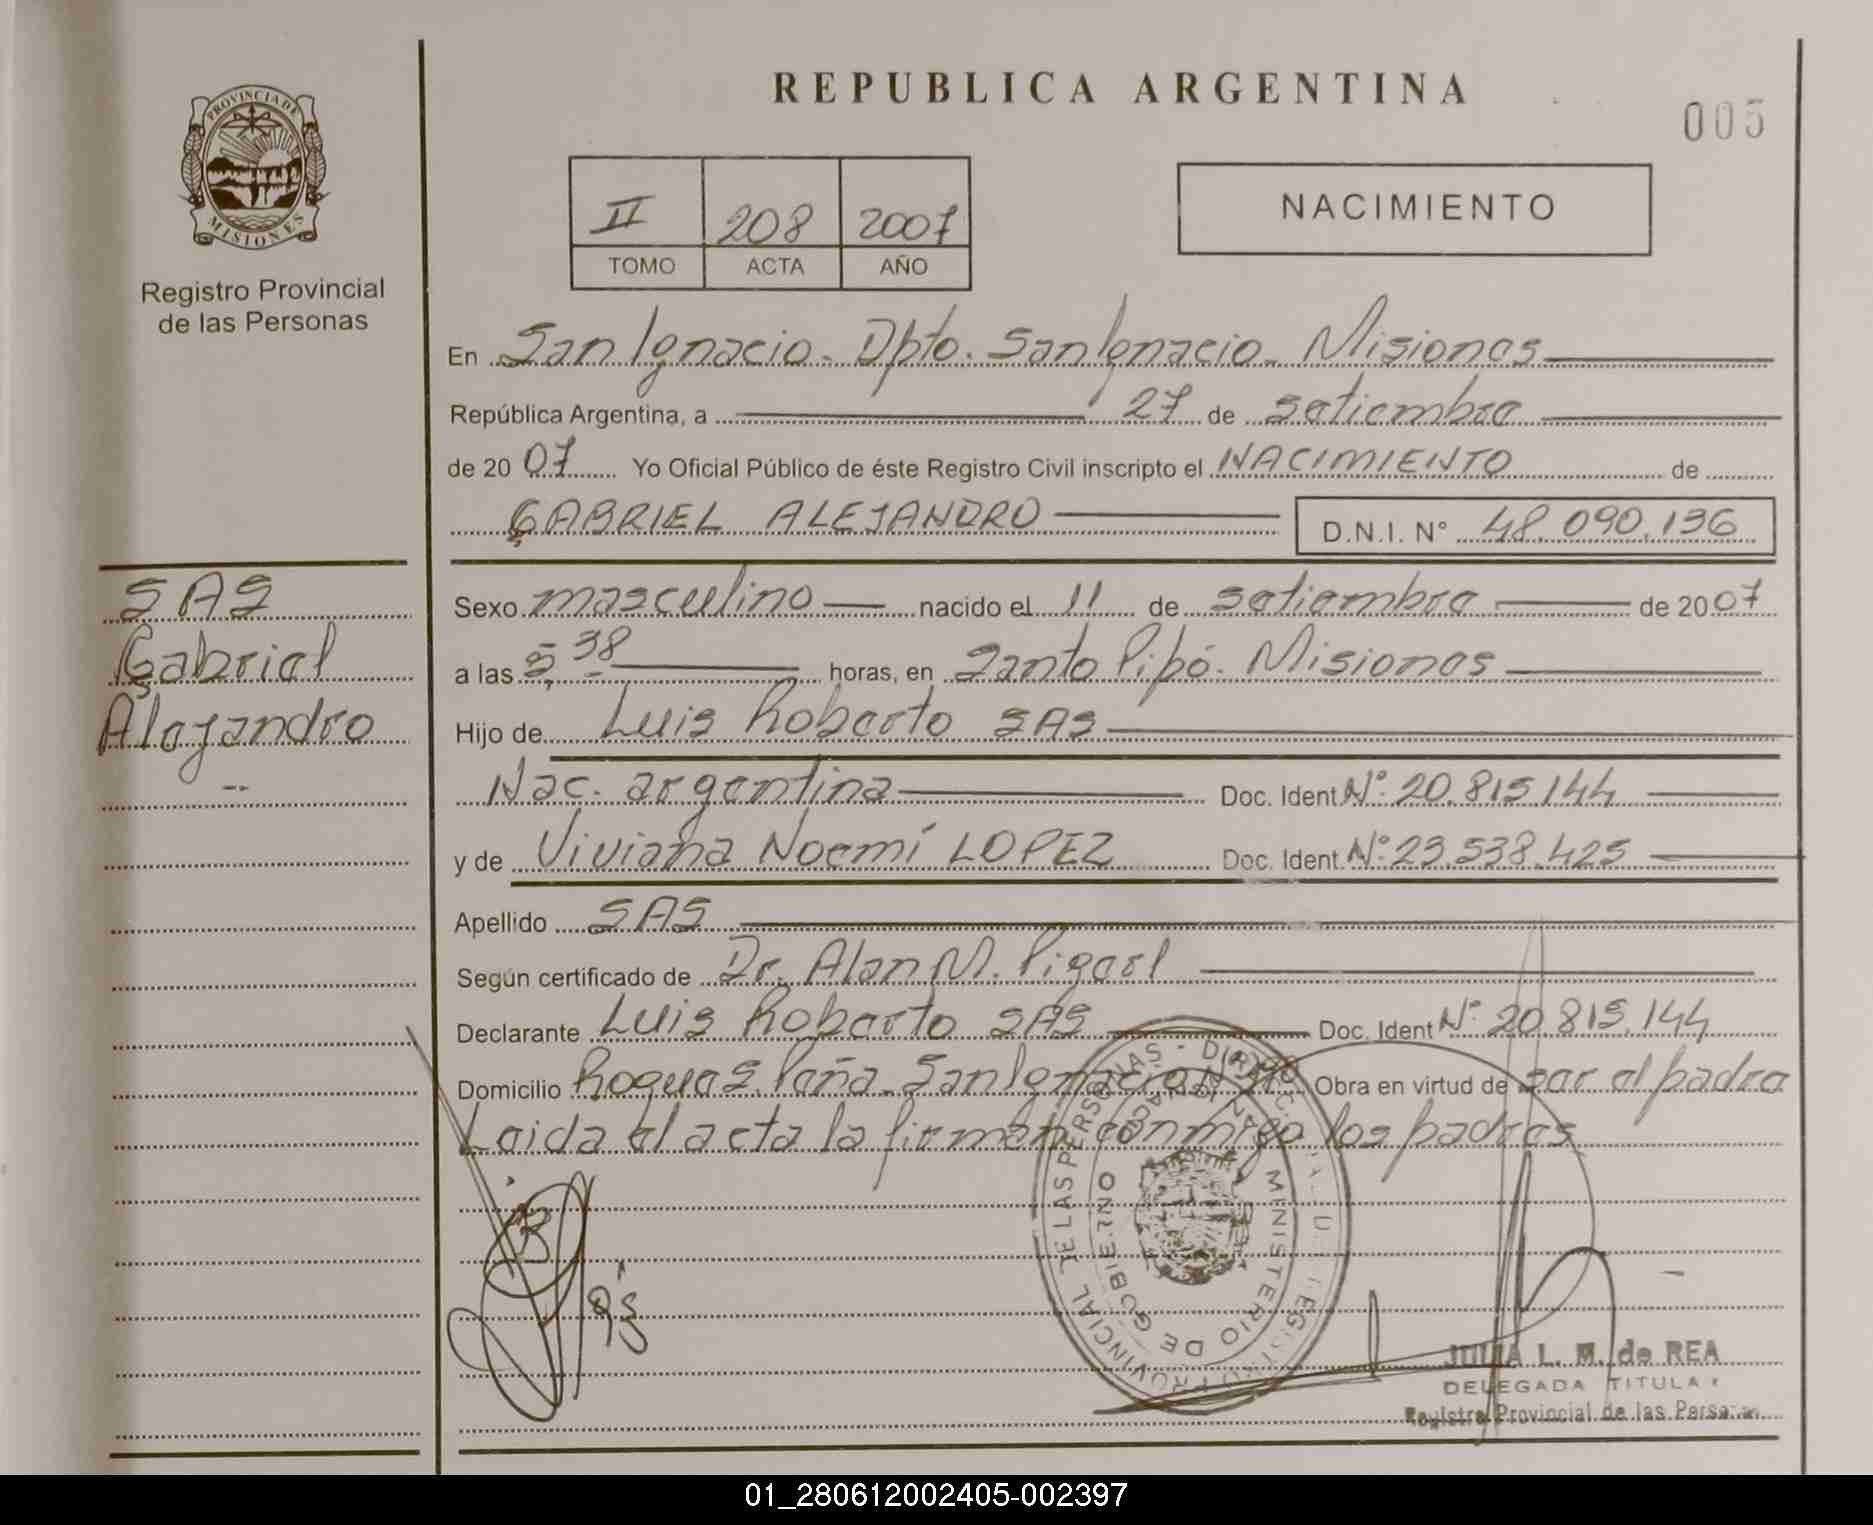 PROVINCIA DE
MISIONES
Registro Provincial
de las Personas
SAS
Gabriel
Alejandro
--
REPUBLICA ARGENTINA
005
II 208 2007
TOMO ACTA AÑO
NACIMIENTO
En San Ignacio. Dpto. San Ignacio. Misiones
República Argentina, a 27 de setiembre
de 2007 Yo Oficial Público de éste Registro Civil inscripto el NACIMIENTO de
GABRIEL ALEJANDRO D.N.I. N° 48.090.136
Sexo masculino nacido el 11 de setiembre de 2007
a las 5,38 horas, en Santo Pipó. Misiones
Hijo de Luis Roberto SAS
Nac. argentina Doc. Ident N° 20.815.144
y de Viviana Noemí LOPEZ Doc. Ident. N° 23.538.425
Apellido SAS
Según certificado de Dr. Alan M.
Declarante Luis Roberto SAS Doc. Ident N° 20.815.144
Domicilio Roque S. Peña. San Ignacio Obra en virtud de ser el padre
Leida el acta la firman conmigo los padres
MINISTERIO DE GOBIERNO
JULIA L. M. de REA
DELEGADA TITULAR
Registro Provincial de las Personas
01_280612002405-002397